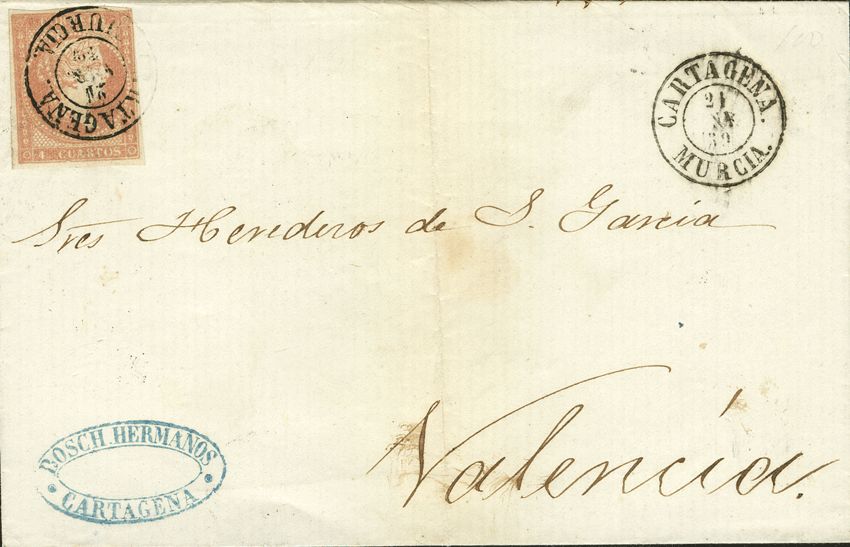 CARTAGENA.
MURCIA.
4 CUERTOS
CARTAGENA.
21
59
MURCIA.
Sres Herederos de S. García
Valencia.
BOSCH HERMANOS
CARTAGENA